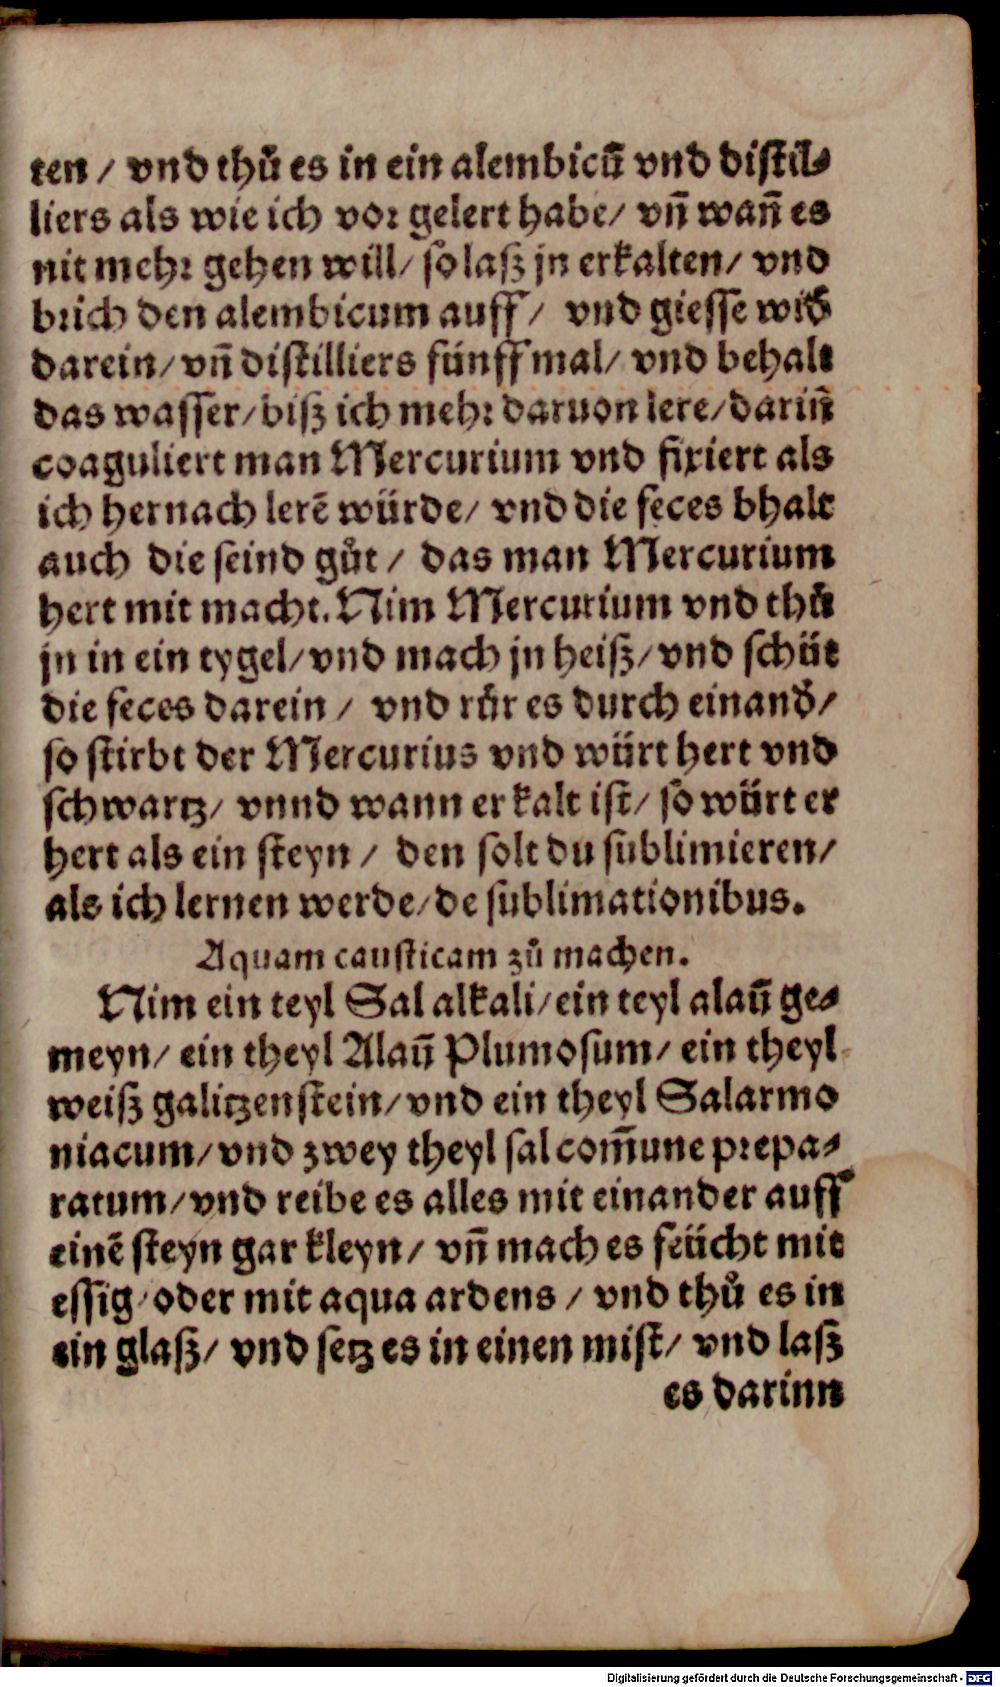 ten / vnd thů es in ein alembicũ vnd distil⸗
liers als wie ich vor gelert habe / vñ wañ es
nit mehr gehen will / so laß jn erkalten / vnd
brich den alembicum auff / vnd giesse wid̕
darein / vñ distilliers fünff mal / vnd behalt
das wasser / biß ich mehr daruon lere / dariñ
coaguliert man Mercurium vnd fixiert als
ich hernach lerẽ würde / vnd die feces bhalt
auch die seind gůt / das man Mercurium
hert mit macht. Nim Mercurium vnd thů
jn in ein tygel / vnd mach jn heiß / vnd schüt
die feces darein / vnd růr es durch einand̕ /
so stirbt der Mercurius vnd würt hert vnd
schwartz / vnnd wann er kalt ist / so würt er
hert als ein steyn / den solt du sublimieren /
als ich lernen werde / de sublimationibus.
Aquam causticam zů machen.
Nim ein teyl Sal alkali / ein teyl alaũ ge⸗
meyn / ein theyl Alaũ Plumosum / ein theyl
weiß galitzenstein / vnd ein theyl Salarmo
niacum / vnd zwey theyl sal com̃une prepa⸗
ratum / vnd reibe es alles mit einander auff
einẽ steyn gar kleyn / vñ mach es feücht mit
essig / oder mit aqua ardens / vnd thů es in
ein glaß / vnd setz es in einen mist / vnd laß
es darinn
Digitalisierung gefördert durch die Deutsche Forschungsgemeinschaft - DFG